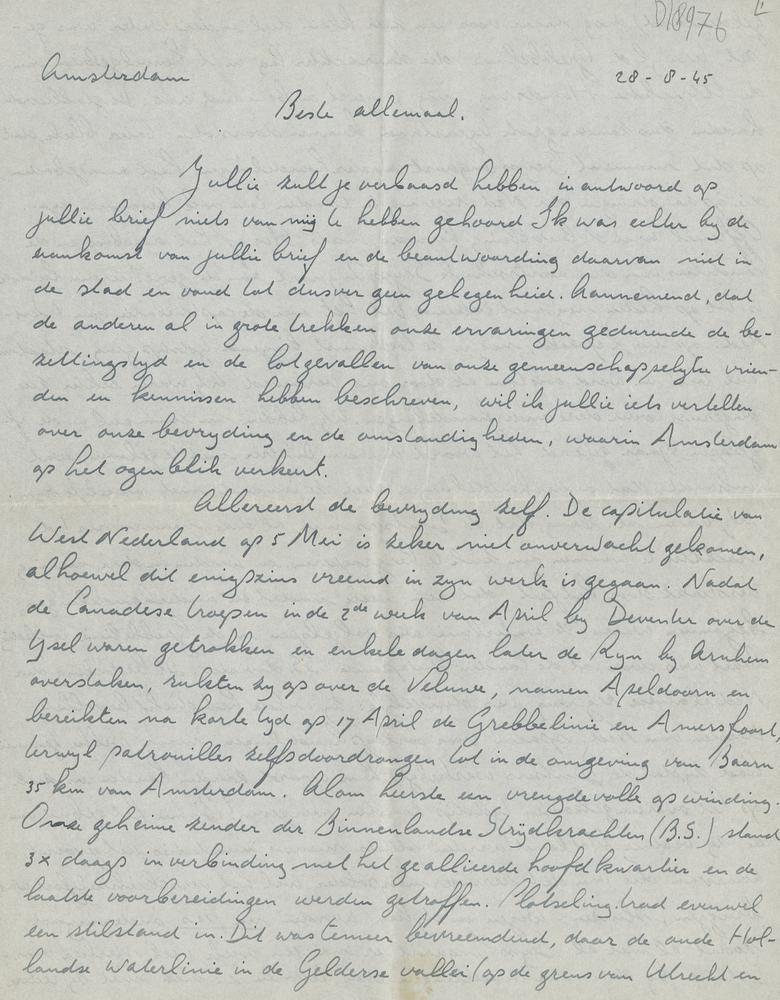 D18976
Amsterdam 28-8-45
Beste allemaal.
Jullie zult je verbaasd hebben in antwoord op
jullie brief niets van mij te hebben gehoord Ik was echter by de
aankomst van jullie brief en de beantwoording daarvan niet in
de stad en vond tot dusver geen gelegenheid. Aannemend, dat
de anderen al in grote trekken onze ervaringen gedurende de be-
zettingstyd en de lotgevallen van onze gemeenschappelyke vrien-
den en kennissen hebben beschreven, wil ik jullie iets vertellen
over onze bevryding en de omstandigheden, waarin Amsterdam
op het ogenblik verkeert.
Allereerst de bevryding zelf. De capitulatie van
West Nederland op 5 Mei is zeker niet onverwacht gekomen,
alhoewel dit enigszins vreemd in zyn werk is gegaan. Nadat
de Canadese troepen in de 2de week van April by Deventer over de
Ysel waren getrokken en enkele dagen later de Ryn by Arnhem
overstaken, rukten zy op over de Veluwe, namen Apeldoorn en
bereikten na korte tyd op 17 April de Grebbelinie en Amersfoort,
terwyl patrouilles zelfs doordrongen tot in de omgeving van Baarn
35 km van Amsterdam. Alom heerste een vreugdevolle opwinding.
Onze geheime zender der Binnenlandse Strijdkrachten (B.S.) stond
3x daags in verbinding met het geallieerde hoofdkwartier en de
laatste voorbereidingen werden getroffen. Plotseling trad evenwel
een stilstand in. Dit was temeer bevreemdend, daar de oude Hol-
landse Waterlinie in de Gelderse vallei (op de grens van Utrecht en